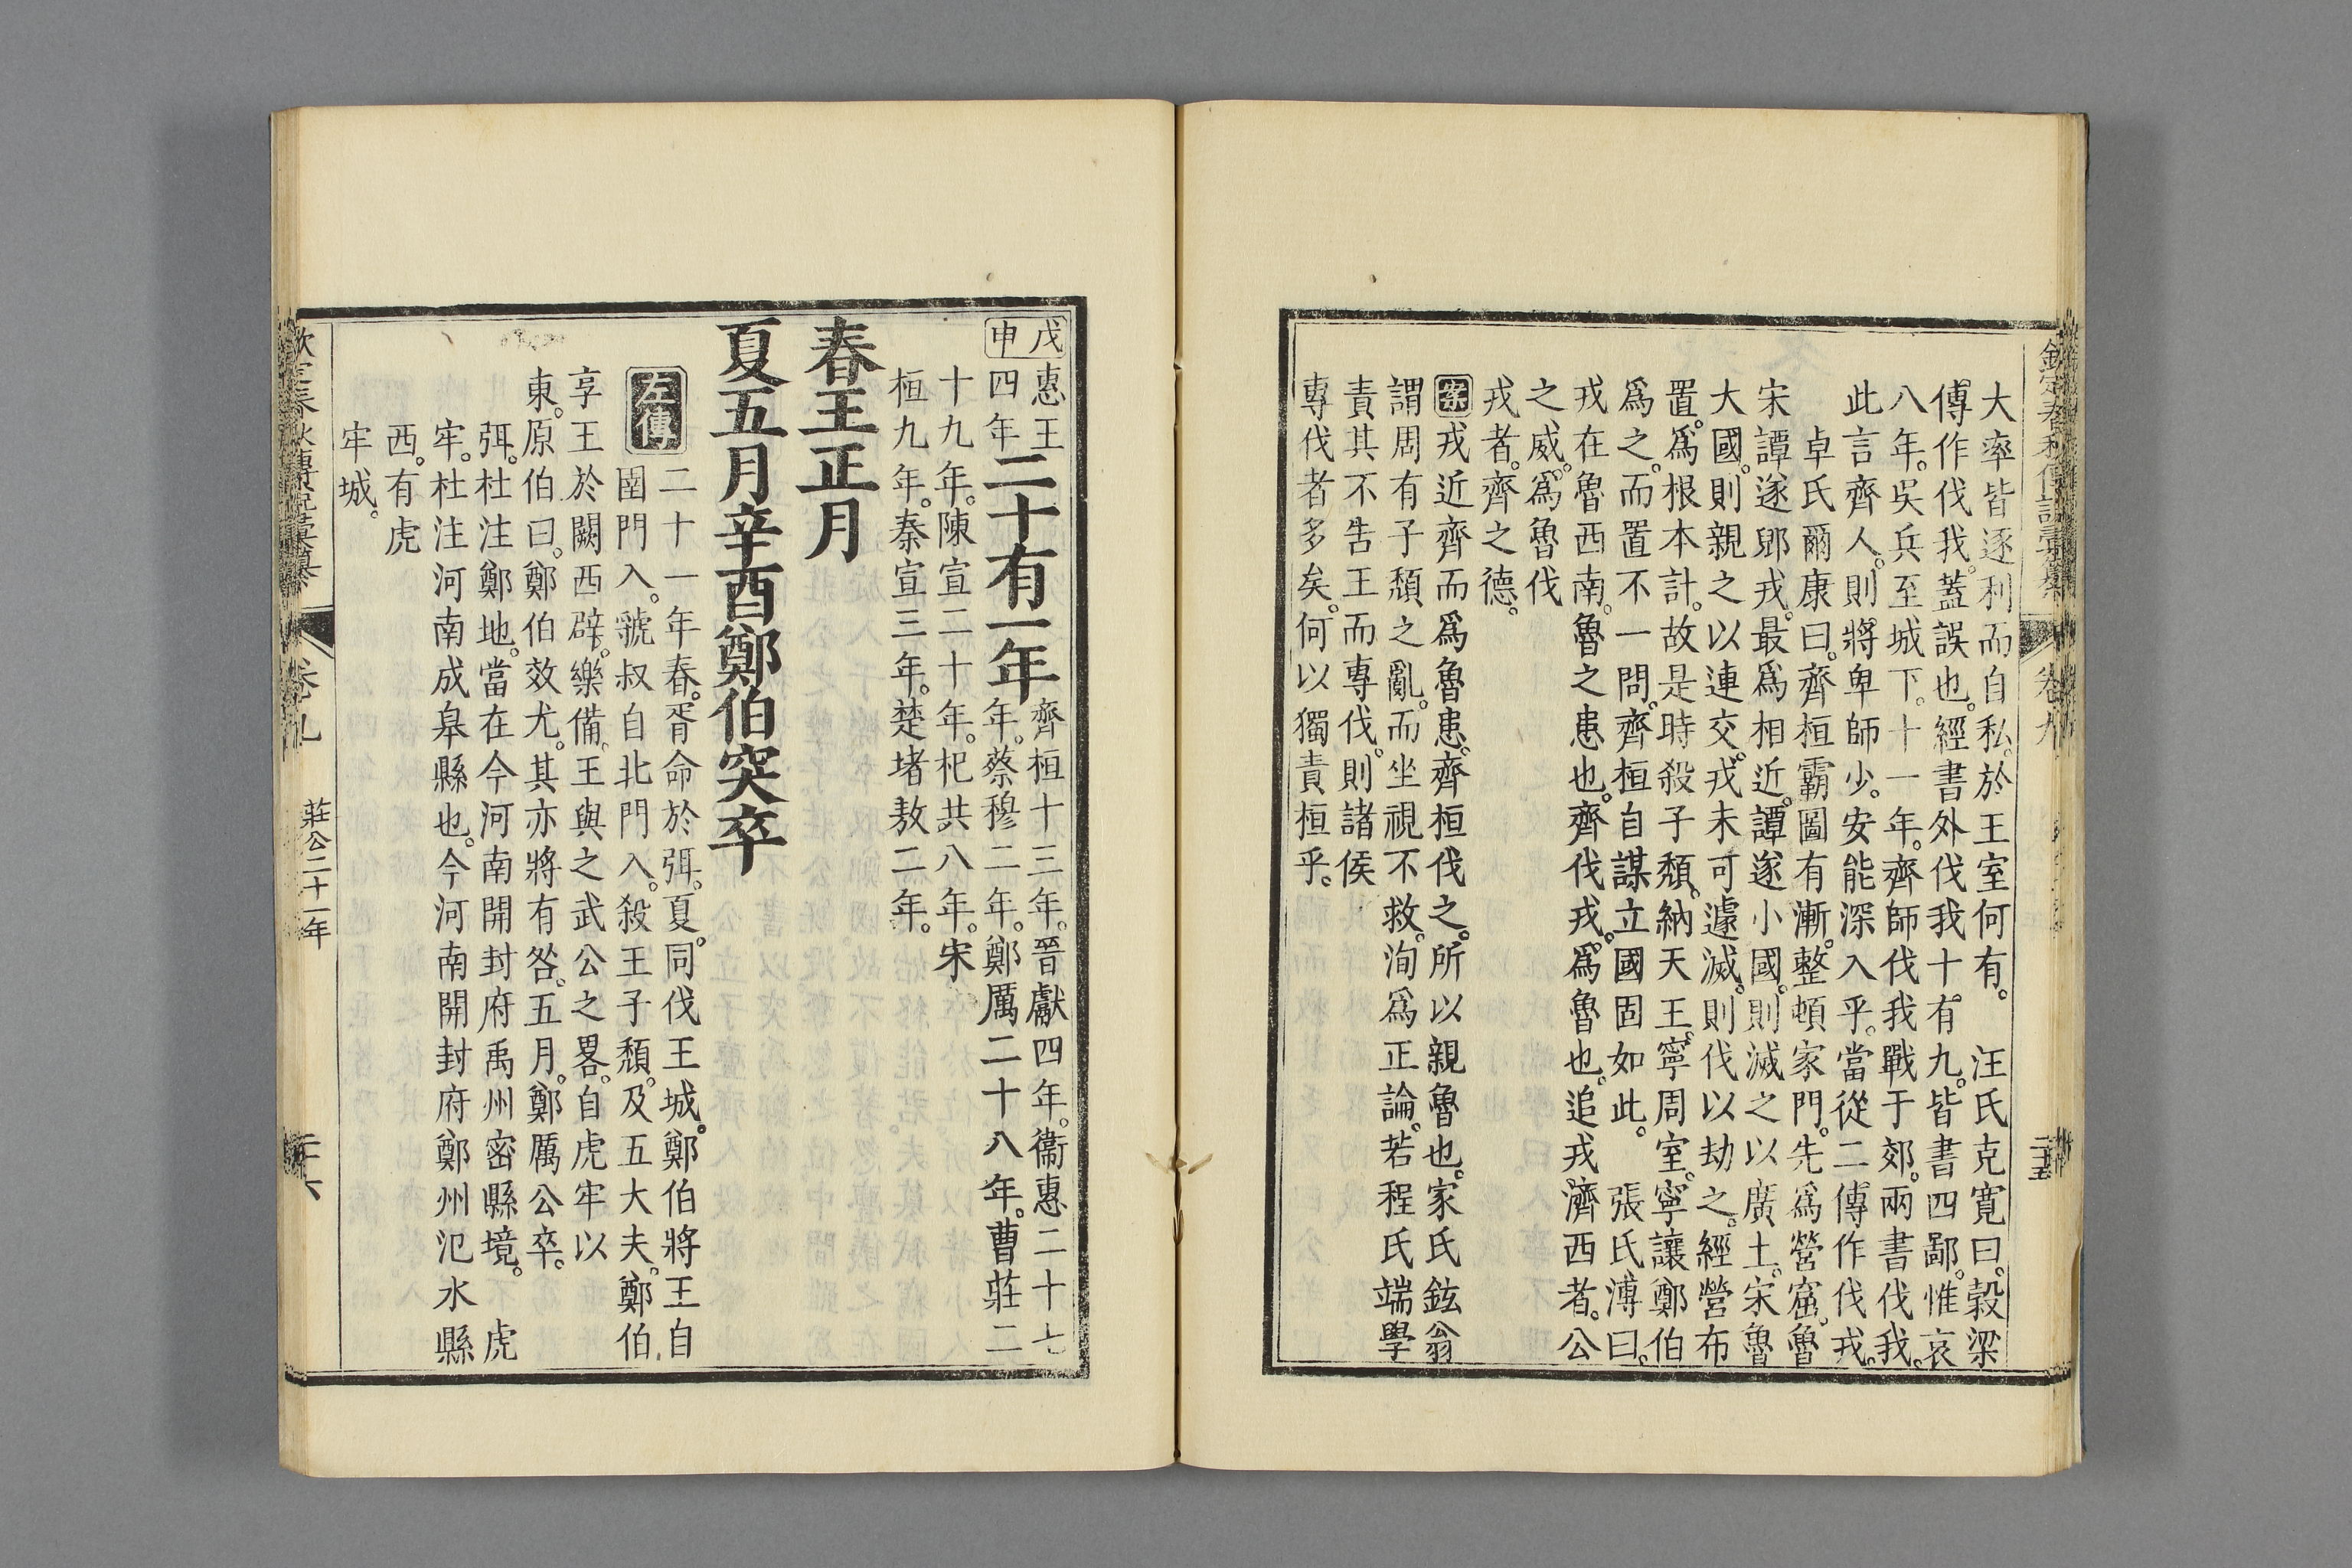 大率皆逐利而自私。於王室何有。　汪氏克寬曰。穀梁
傳作伐我。蓋誤也。經書外伐我十有九。皆書四鄙。惟哀
八年。吳兵至城下。十一年。齊師伐我戰于郊。兩書伐我。
此言齊人。則將卑師少。安能深入乎。當從二傳作伐戎。
卓氏爾康曰。齊桓霸圖有漸。整頓家門。先爲營窟。魯
宋譚遂郳戎。最爲相近。譚遂小國。則滅之以廣土。宋魯
大國。則親之以連交。戎未可遽滅。則伐以劫之。經營布
置。爲根本計。故是時殺子頹。納天王。寧周室。寧讓鄭伯
爲之。而置不一問。齊桓自謀立國固如此。　張氏溥曰。
戎在魯西南。魯之患也。齊伐戎。爲魯也。追戎濟西者。公
之威。爲魯伐
戎者。齊之德。
案戎近齊而爲魯患。齊桓伐之。所以親魯也。家氏鉉翁
謂周有子頹之亂。而坐視不救。洵爲正論。若程氏端學
責其不告王而專伐。則諸侯
專伐者多矣。何以獨責桓乎。
卷九
二十五
戊申惠王四年二十有一年齊桓十三年。晉獻四年。衞惠二十七
年。蔡穆二年。鄭厲二十八年。曹莊二
十九年。陳宣二十年。杞共八年。宋
桓九年。秦宣三年。楚堵敖二年。
春王正月
夏五月辛酉鄭伯突卒
左傳二十一年春。胥命於弭。夏。同伐王城。鄭伯將王自
圉門入。虢叔自北門入。殺王子頹。及五大夫。鄭伯
享王於闕西辟。樂備。王與之武公之畧。自虎牢以
東。原伯曰。鄭伯效尤。其亦將有咎。五月。鄭厲公卒。
弭。杜注鄭地。當在今河南開封府禹州密縣境。　虎
牢。杜注河南成皐縣也。今河南開封府鄭州汜水縣
西。有虎
牢城。
卷九
莊公二十一年